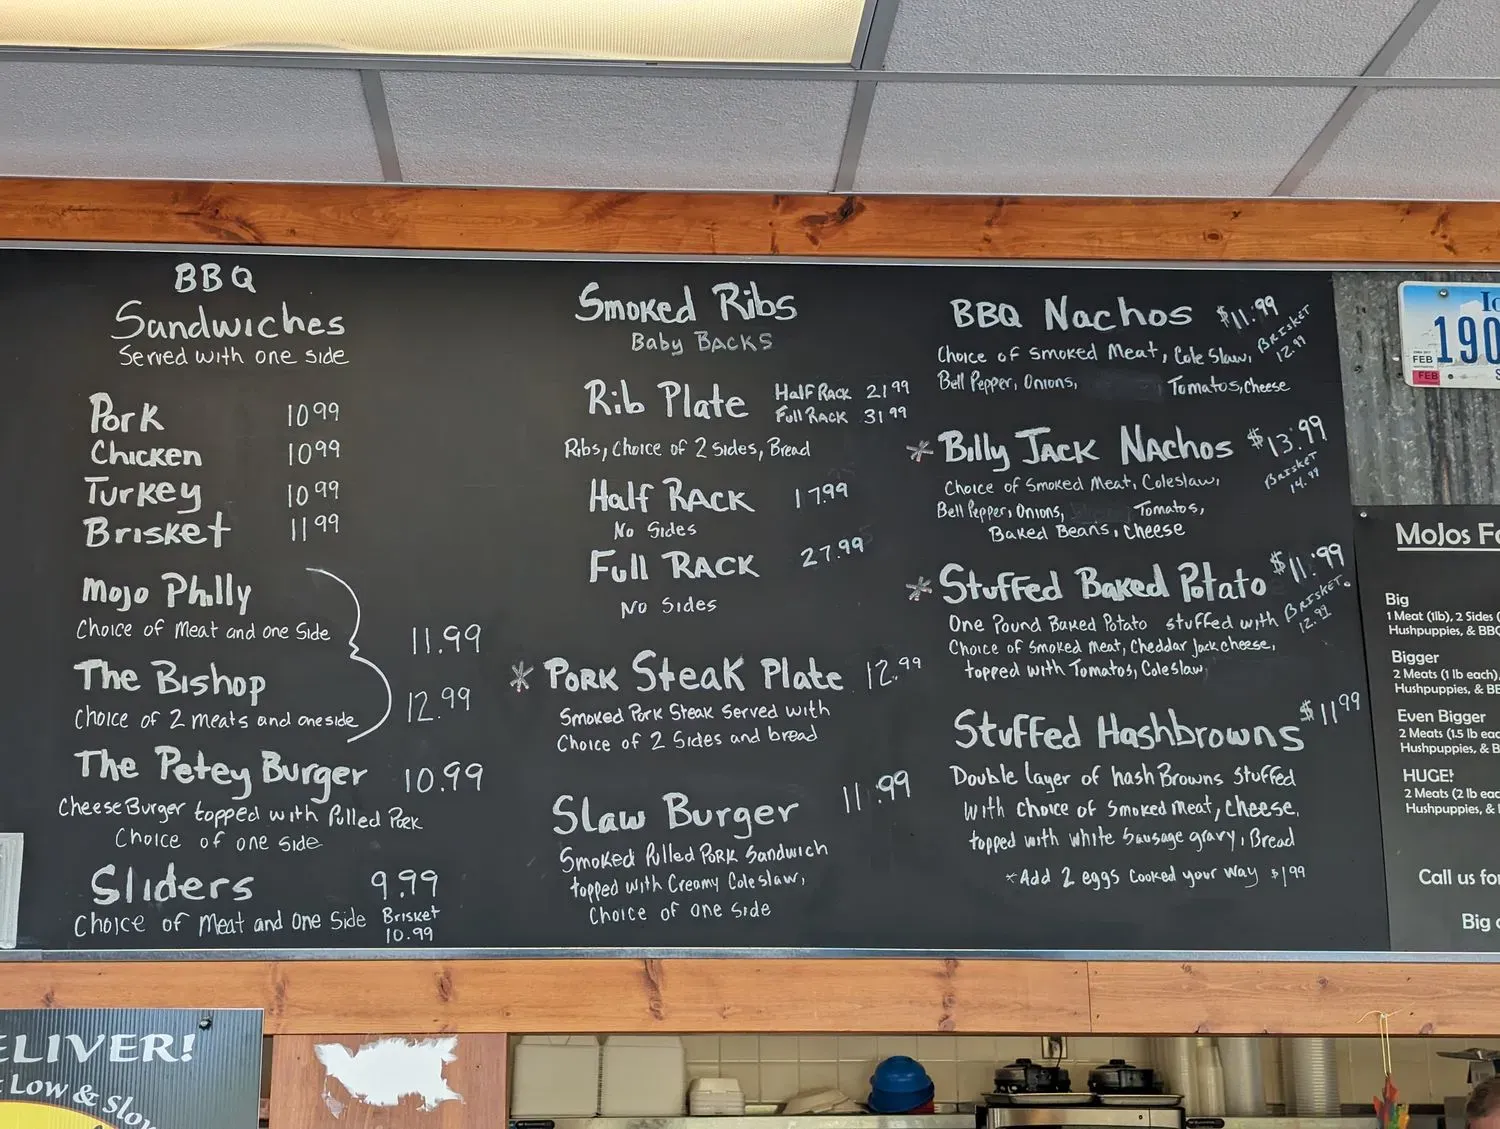 BBQ
Sandwiches
Served with one side
Pork 10.99
Chicken 10.99
Turkey 10.99
Brisket 11.99
Mojo Philly
Choice of Meat and one Side 11.99
The Bishop
Choice of 2 meats and one side 12.99
The Petey Burger 10.99
Cheese Burger topped with Pulled Pork
Choice of one side
Sliders 9.99
Choice of Meat and One Side Brisket
10.99
Smoked Ribs
Baby Backs
Rib Plate Half Rack 21.99
Full Rack 31.99
Ribs, Choice of 2 Sides, Bread
Half Rack 17.99
No Sides
Full Rack 27.99
No Sides
* Pork Steak Plate 12.99
Smoked Pork Steak Served with
Choice of 2 Sides and bread
Slaw Burger 11.99
Smoked Pulled Pork Sandwich
topped with Creamy Coleslaw,
Choice of one Side
BBQ Nachos $11.99
Choice of Smoked Meat, Cole Slaw, Brisket
12.99
Bell Pepper, Onions, Tomatos, Cheese
* Billy Jack Nachos $13.99
Choice of Smoked Meat, Coleslaw, Brisket
14.99
Bell Pepper, Onions, Tomatos,
Baked Beans, Cheese
* Stuffed Baked Potato $11.99
One Pound Baked Potato stuffed with Brisket
12.99
Choice of Smoked meat, Cheddar Jack cheese,
topped with Tomatos, Coleslaw
Stuffed Hashbrowns $11.99
Double layer of hash Browns Stuffed
With Choice of Smoked Meat, Cheese,
topped with white Sausage gravy, Bread
*Add 2 eggs Cooked your Way $1.99
190
FEB
FEB
MoJos
Big
1 Meat (1lb), 2 Sides
Hushpuppies, &
Bigger
2 Meats (1 lb each),
Hushpuppies, &
Even Bigger
2 Meats (1.5 lb
Hushpuppies, &
HUGE!
2 Meats (2 lb
Hushpuppies, &
Call us
Big
ELIVER!
Low & Slow